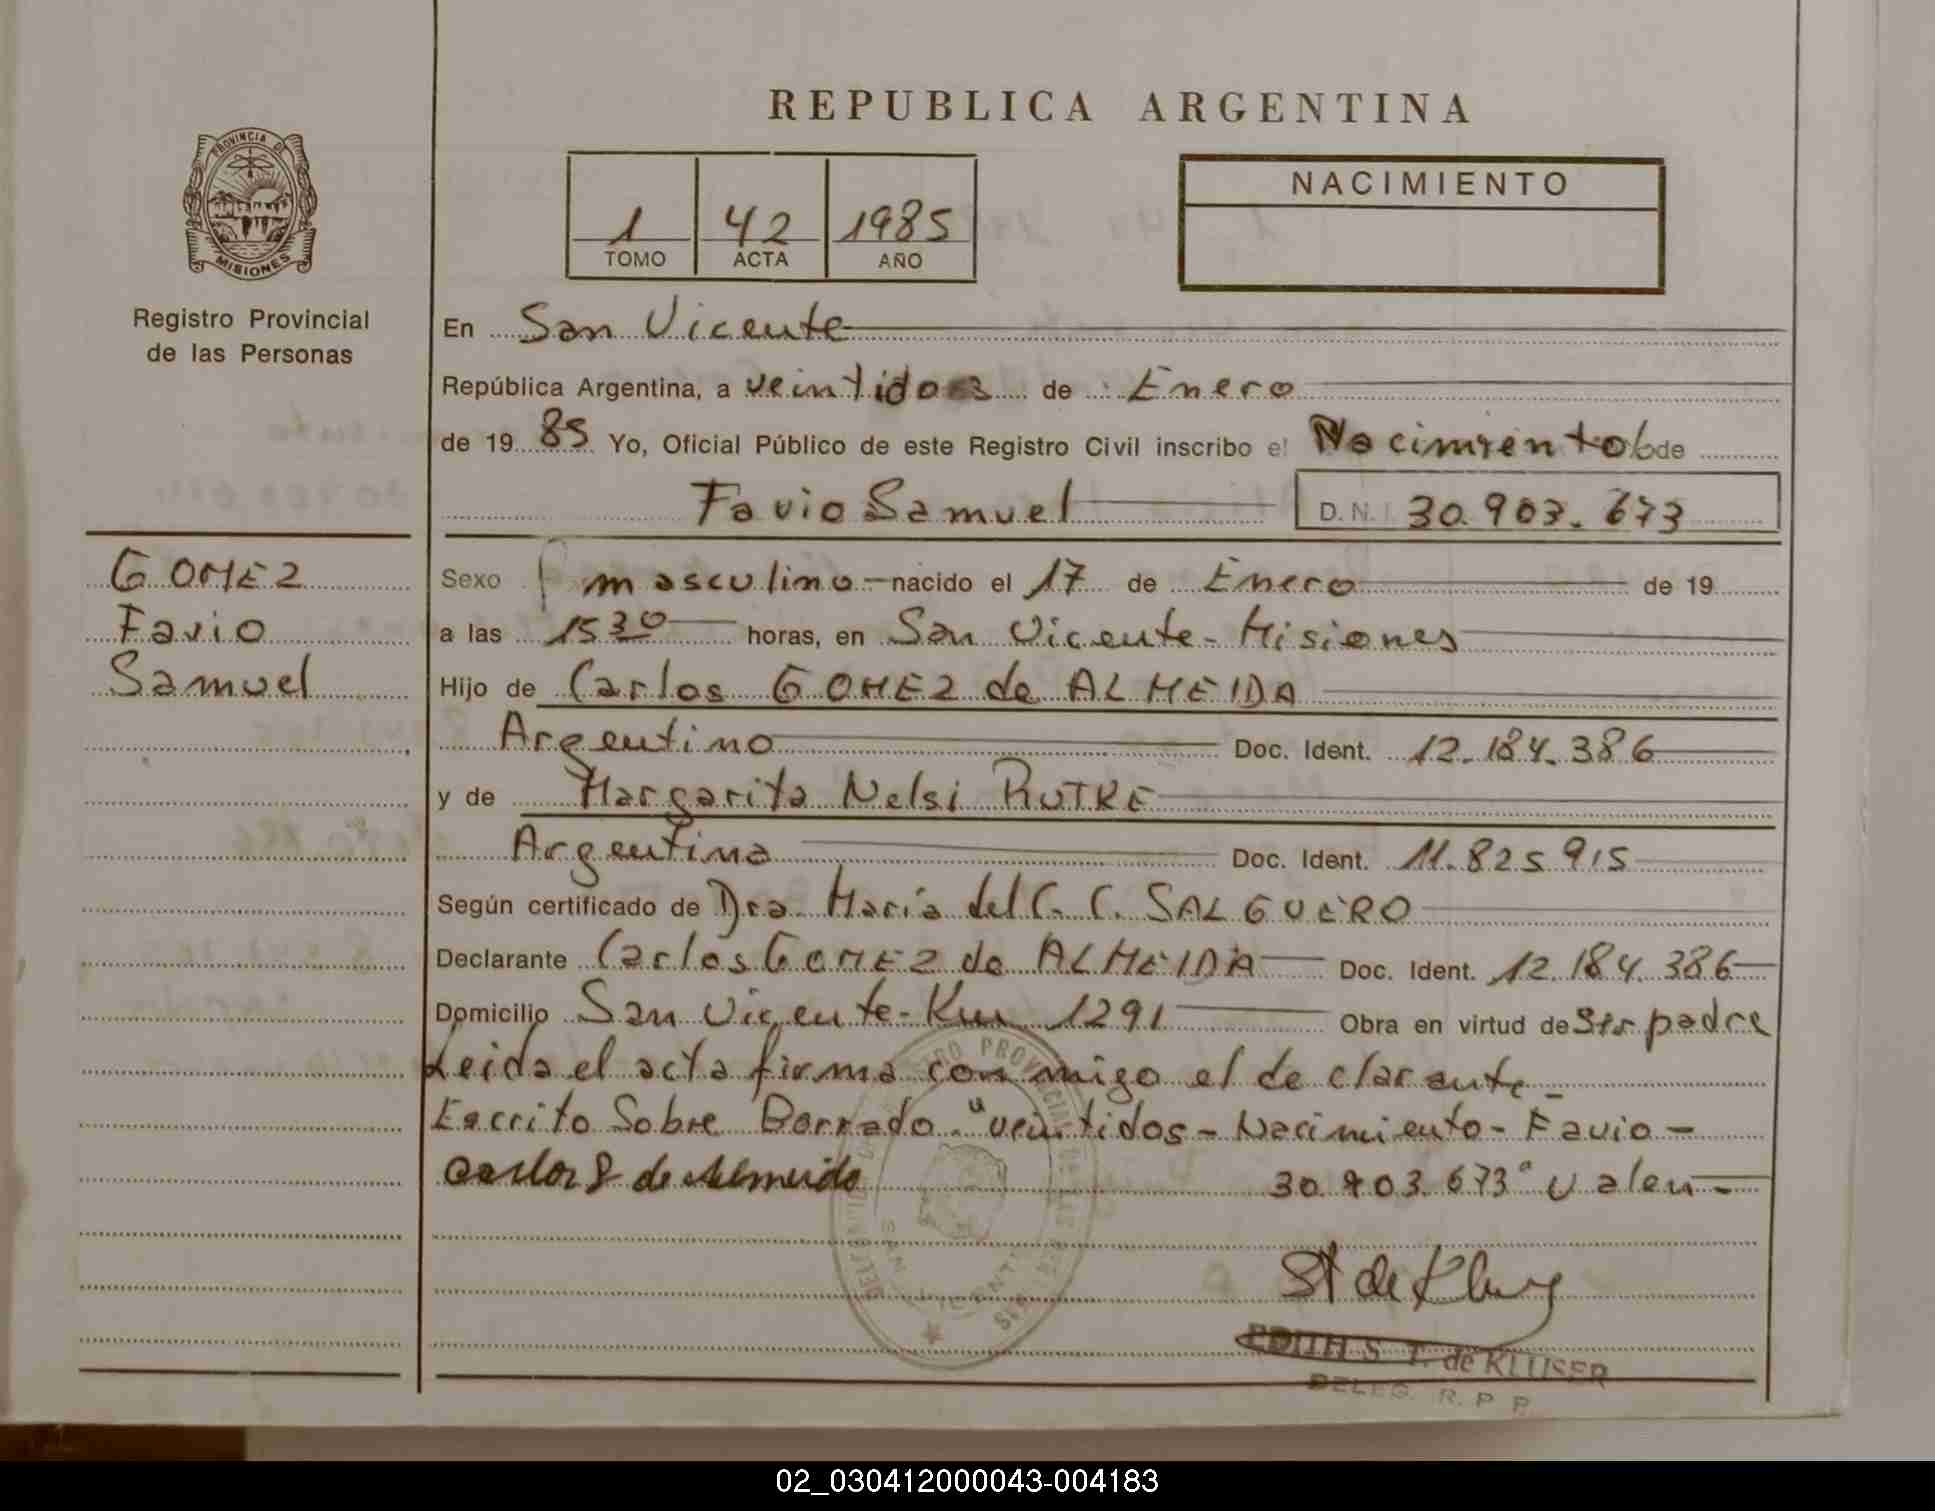 REPUBLICA ARGENTINA
PROVINCIA DE
MISIONES
Registro Provincial
de las Personas
1 42 1985
TOMO ACTA AÑO
NACIMIENTO
En San Vicente
República Argentina, a veintidos de Enero
de 19 85 Yo, Oficial Público de este Registro Civil inscribo el Nacimiento de
Favio Samuel D.N.I. 30.903.673
GOMEZ
Favio
Samuel
Sexo masculino nacido el 17 de Enero de 19
a las 15 30 horas, en San Vicente - Misiones
Hijo de Carlos GOMEZ de ALMEIDA
Argentino Doc. Ident. 12.184.386
y de Margarita Nelsi RUTKE
Argentina Doc. Ident. 11.825.915
Según certificado de Dra. María del C. C. SALGUERO
Declarante Carlos GOMEZ de ALMEIDA Doc. Ident. 12.184.386
Domicilio San Vicente - Km 1291 Obra en virtud de Ser padre
Leida el acta firma con migo el declarante -
Escrito Sobre Borrado "veintidos - Nacimiento - Favio -
30.903.673" Valen -
Carlos G de Almeida
REGISTRO PROVINCIAL DE LAS PERSONAS
SAN VICENTE
St de Kluser
EDITH S. T. de KLUSER
DELEG. R. P. P.
02_030412000043-004183